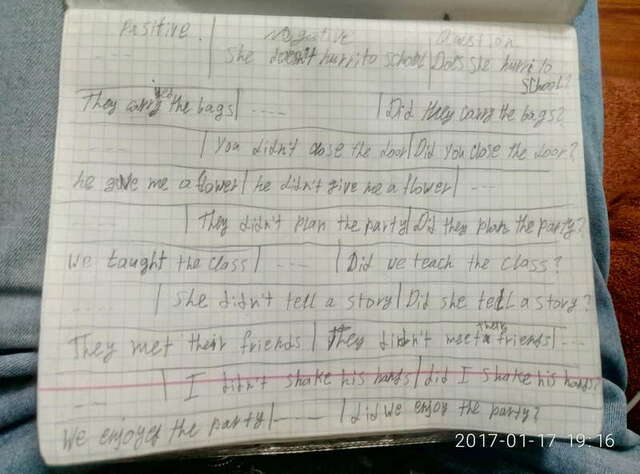 Positive. | Negative | Question
---- | She doesn't hurri to school | Does she hurri to school?
They carryied the bags | ---- | Did they carry the bags?
---- | You didn't close the door | Did you close the door?
he give me a flower | he didn't give me a flower | ---
---- | They didn't plan the party | Did they plan the party?
we taught the class | ---- | Did we teach the class?
---- | She didn't tell a story | Did she tell a story?
They met their friends | They didn't meet their friends | ---
---- | I didn't shake his hands | did I shake his hands?
We enjoyed the party | ---- | did we enjoy the party?
2017-01-17 19:16